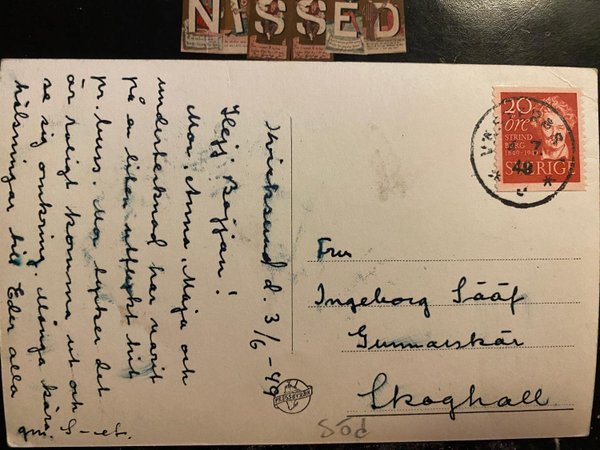 NISSED
Kvicksund d. 3/6-49
Hejj Bojjan!
Mor, Anna, Maja och
undertecknad har varit
på en liten utflykt hit
pr. buss. Mor tycker det
är roligt komma ut och
se sig omkring. Många kära
hälsningar till Eder alla
gm. S-et.
20
öre
STRIND
BERG
1849-1949
SVERIGE
VÄSTERÅS
7
49
Fru
Ingeborg Sääf
Gunnarskär
Skoghall.
Söd